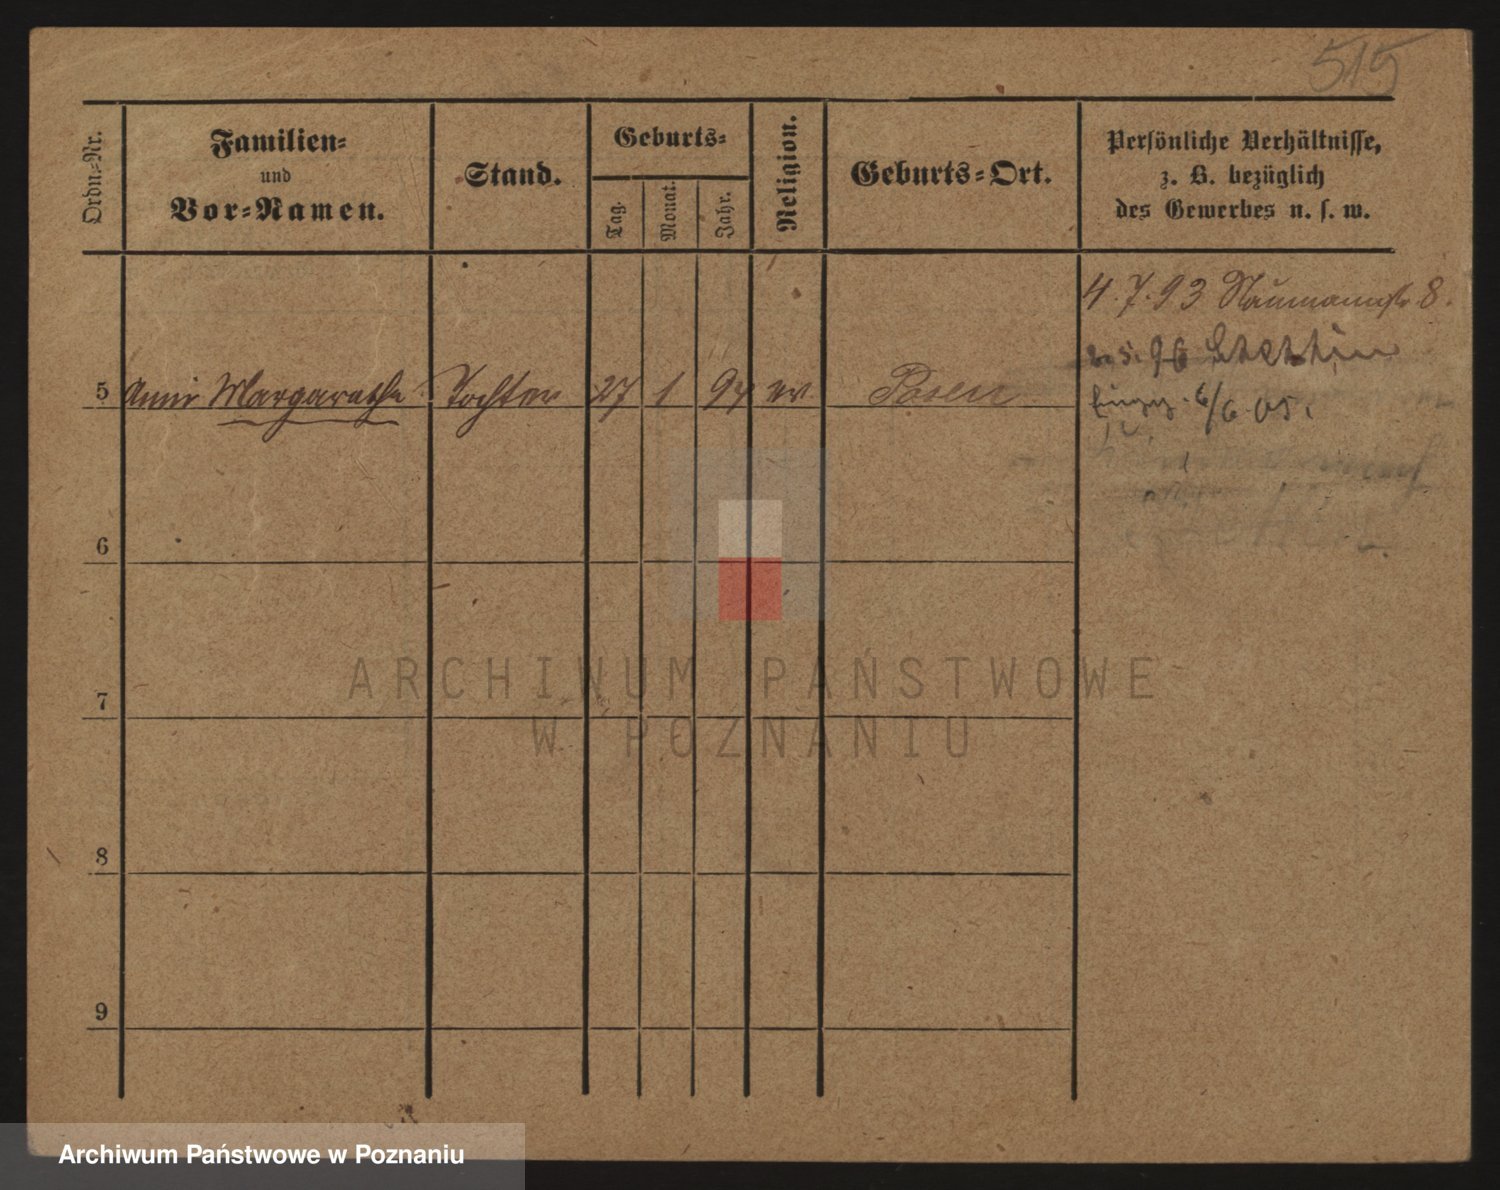 515
Ordn.-Nr.
Familien-
und
Vor-Namen.
Stand.
Geburts-
Tag.
Monat.
Jahr.
Religion.
Geburts-Ort.
Persönliche Verhältnisse,
z. B. bezüglich
des Gewerbes u. s. w.
4. 7. 93 Naumannstr 8.
2. 5. 96 Stettin
5 Anni Margarethe Tochter 27 1 94 ev. Posen
6/6. 05.
6
7
8
9
ARCHIWUM PAŃSTWOWE
W POZNANIU
Archiwum Państwowe w Poznaniu